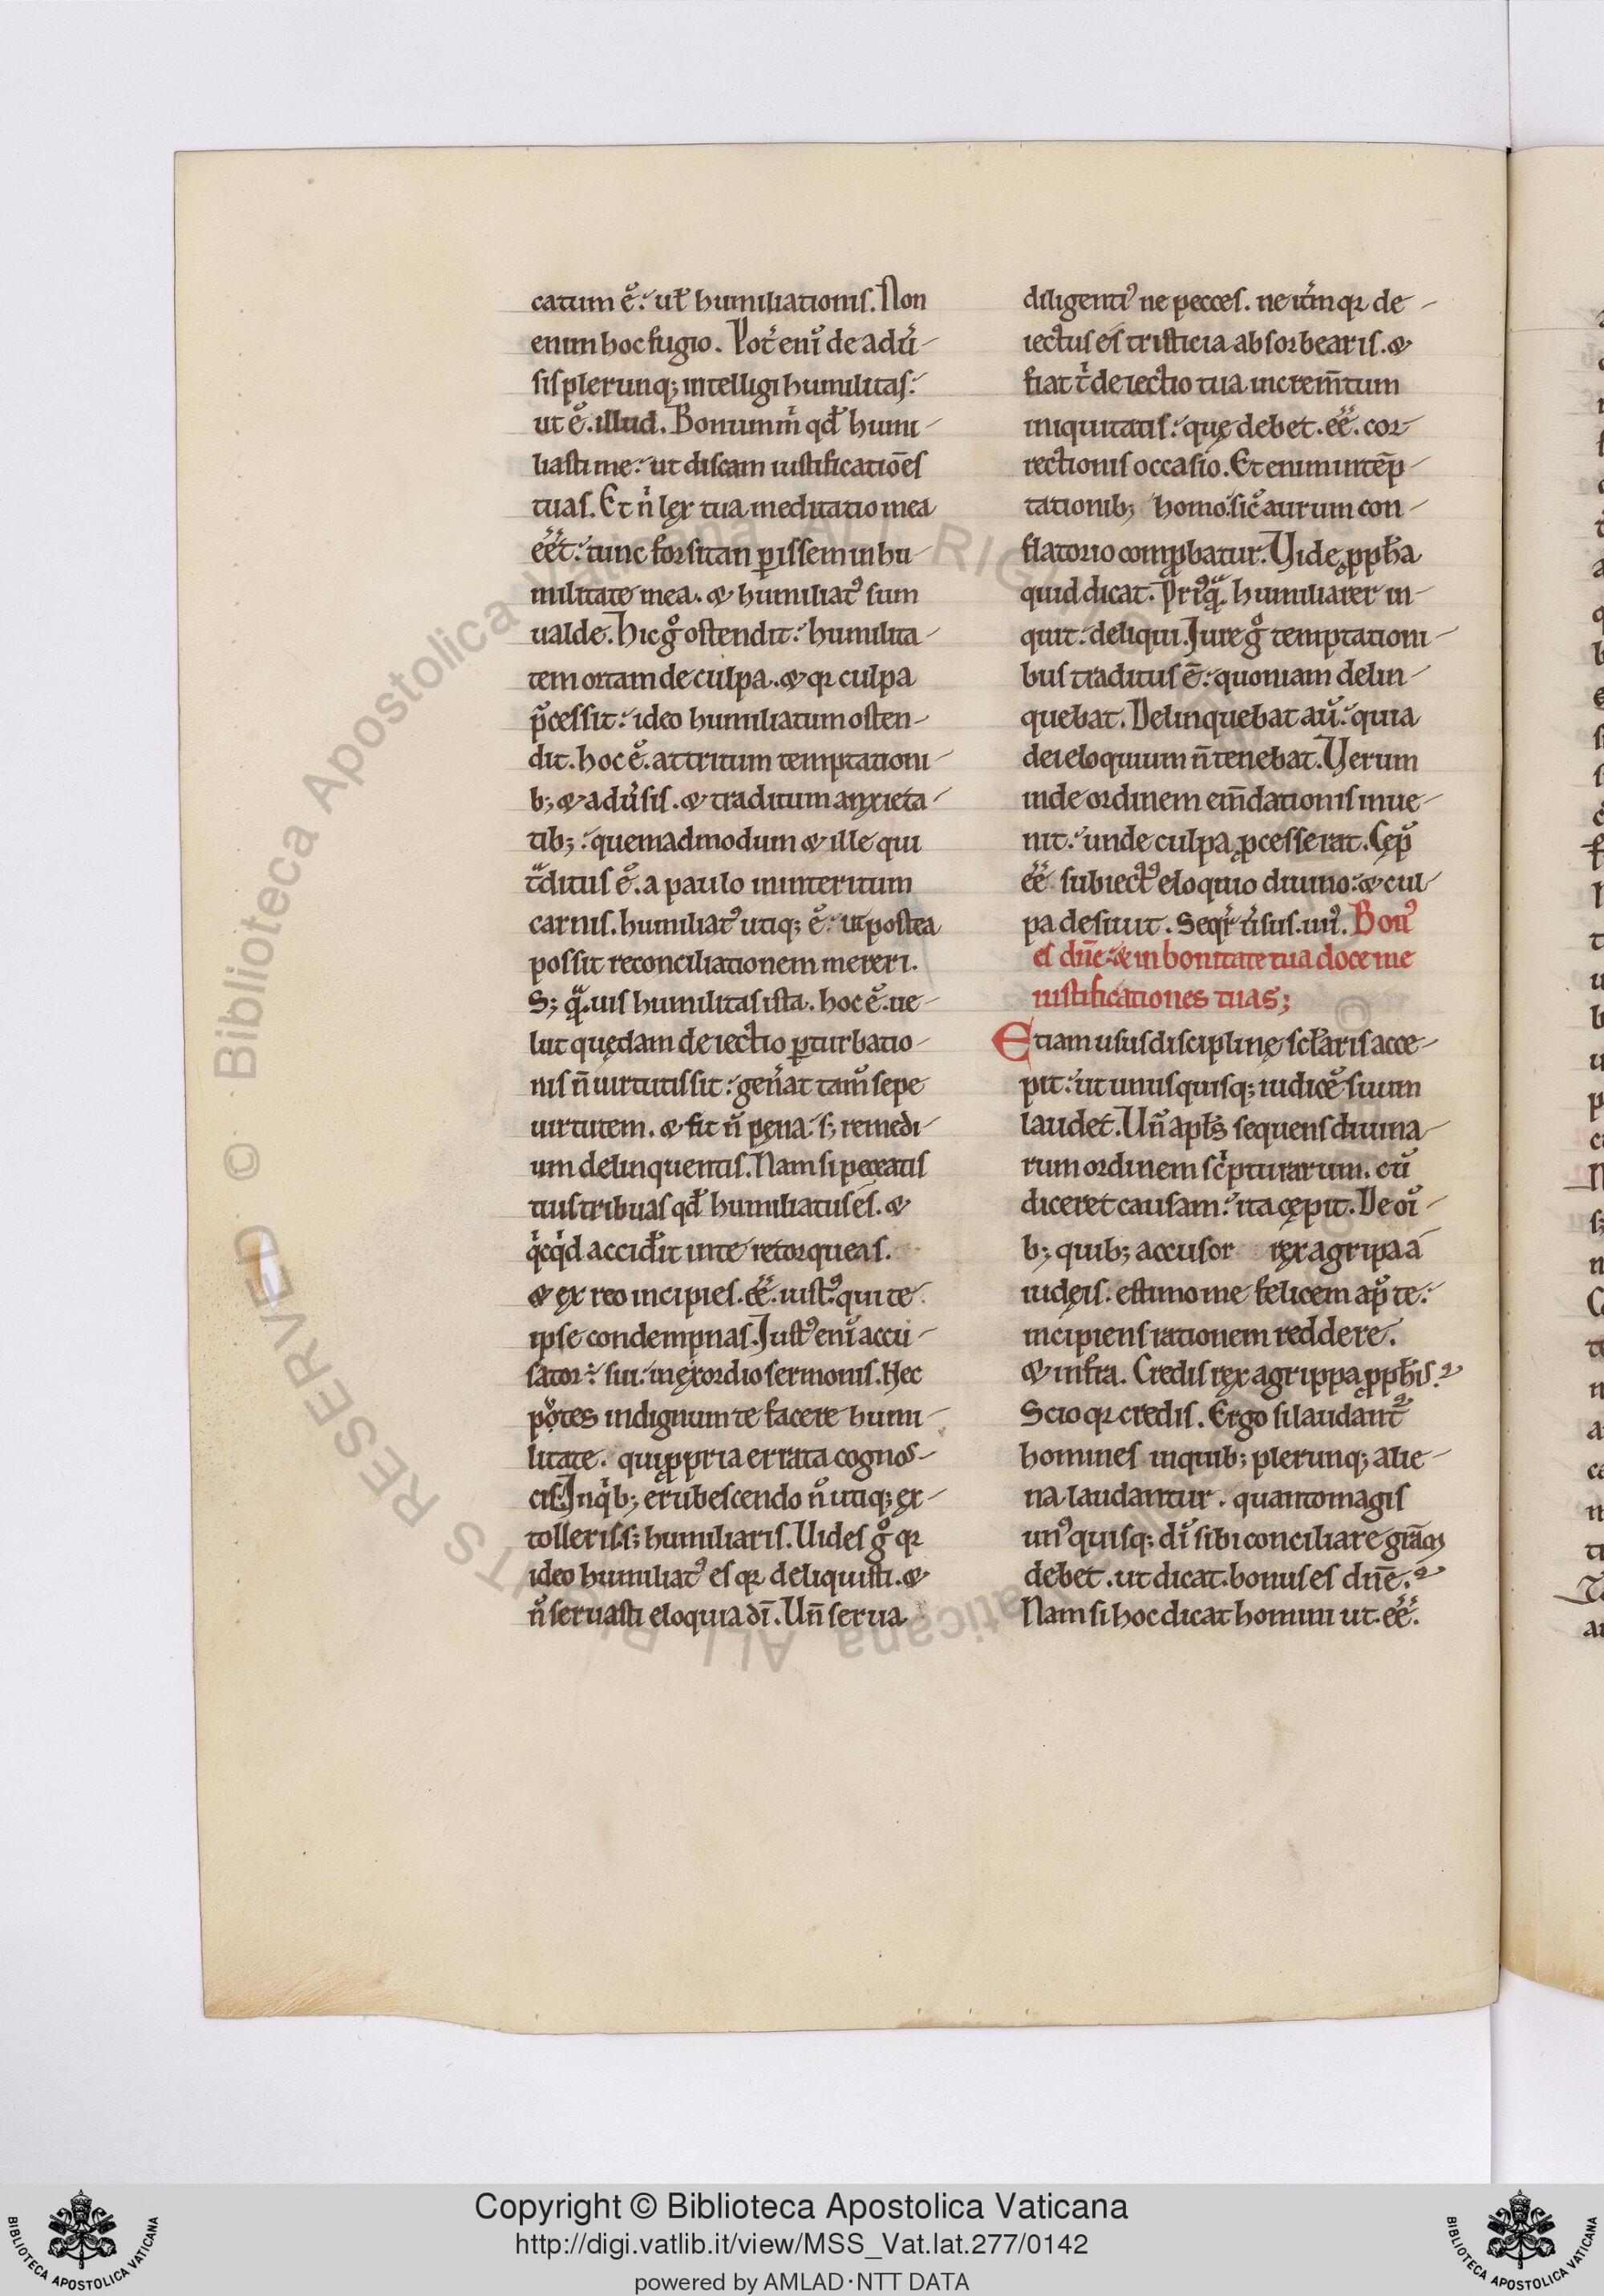 catum ē. ut̄ humiliationis. Non
enim hoc fugio. Pot̄ enī de adū-
sis plerunq; intelligi humilitas.
ut ē. illud. Bonum m̄ qđ humi-
liasti me. ut discam iustificatiōes
tuas. Et n̄ lex tua meditatio mea
eēt. tunc forsitan ꝑissem in hu-
militate mea. & humiliat᷒ sum
ualde. Hic gͦ ostendit. humilita-
tem ortam de culpa. & qꝛ culpa
p̄cessit. ideo humiliatum osten-
dit. hoc ē. attritum temptationi-
b; & adūsis. & traditum anxieta-
tib;. quemadmodum & ille qui
tͣditus ē. a paulo in interitum
carnis. humiliat᷒ utiq; ē. ut postea
possit reconciliationem mereri.
S; qͣ.uis humilitas ista. hoc ē. ue-
lut quędam deiectio ꝑturbatio-
nis n̄ uirtutis sit. gen̄at tam̄ sepe
uirtutem. & fit n̄ pęna. s; remedi-
um delinquentis. Nam si peccatis
tuis tribuas qđ humiliatus es. &
qͥcqͥd accid̄it in te retorqueas.
& ex reo incipies. eē. iust᷒. qui te
ipse condempnas. Just᷒ enī accu-
sator. sui. in exordio sermonis. Hec
potes indignum te facere humi-
litate. qui ꝓpria errata cognos-
cis. Jn qͥb; erubescendo n̄ utiq; ex-
tolleris. s; humiliaris. Uides gͦ qꝛ
ideo humiliat᷒ es qꝛ deliquisti. &
n̄ seruasti eloquia dī. Un̄ serua
diligenti᷒ ne pecces. ne itm̄ qꝛ de-
iectus es tristicia absorbearis. &
fiat tͥ deiectio tua increm̄tum
iniquitatis. quę debet. eē. cor-
rectionis occasio. Et enim in tēp-
tationib; homo. sic̄ aurum con-
flatorio comꝓbatur. Uide ꝓph̄a
quid dicat. Pri᷒qͣ. humiliarer in-
quit. deliqui. Jure gͦ temptationi-
bus traditus ē. quoniam delin-
quebat. Delinquebat aū. quia
dei eloquium n̄ tenebat. Uerum
inde ordinem em̄dationis inue-
nit. unde culpa ꝓcesserat. Cęp̄
eē subiect᷒ eloquio diuino. & cul-
pa desiuit. Seqr̄ ūsus. iii᷒. Bon᷒
es dn̄e. & in bonitate tua doce me
iustificationes tuas;
Etiam usus disciplinę sc̄łaris acce-
pit. ut unusquisq; iudicē suum
laudet. Un̄ apłs sequens diuina-
rum ordinem scͥpturarum. cū
diceret causam. ita cępit. De oī-
b; quib; accusor rex agripa a
iudęis. estimo me felicem ap̄ te.
incipiens rationem reddere.
& infra. Credis rex agrippa ꝓph̄is.
Scio qꝛ credis. Ergo si laudant᷒
homines in quib; plerunq; alie-
na laudantur. quantomagis
un᷒quisq; dī sibi conciliare grām
debet. ut dicat. bonus es dn̄e.
Nam si hoc dicat homini ut. eē.
Copyright © Biblioteca Apostolica Vaticana
http://digi.vatlib.it/view/MSS_Vat.lat.277/0142
powered by AMLAD·NTT DATA